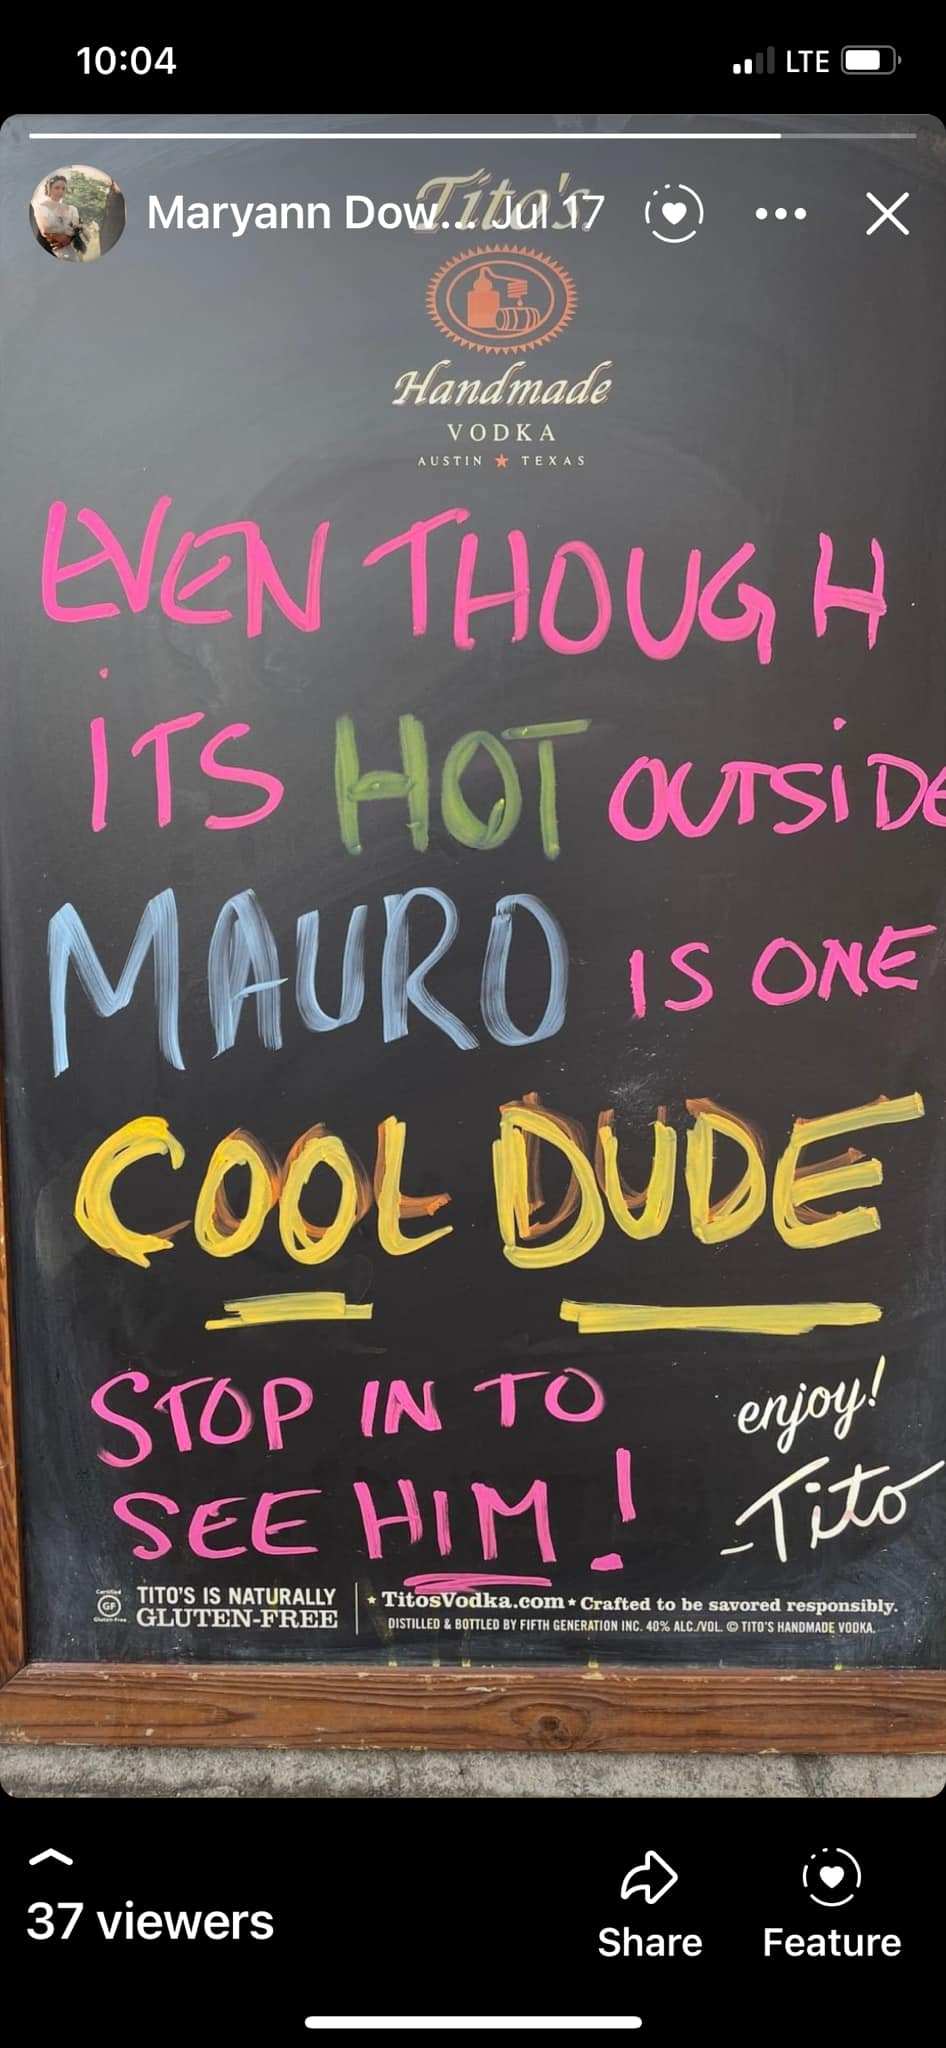 10:04
LTE
Maryann Dow... Jul 17
Tito's
Handmade
VODKA
AUSTIN TEXAS
EVEN THOUGH
ITS HOT OUTSIDE
MAURO IS ONE
COOL DUDE
STOP IN TO
SEE HIM!
enjoy!
-Tito
Certified
GF
Gluten-Free
TITO'S IS NATURALLY
GLUTEN-FREE
TitosVodka.com Crafted to be savored responsibly.
DISTILLED & BOTTLED BY FIFTH GENERATION INC. 40% ALC./VOL. © TITO'S HANDMADE VODKA.
37 viewers
Share
Feature